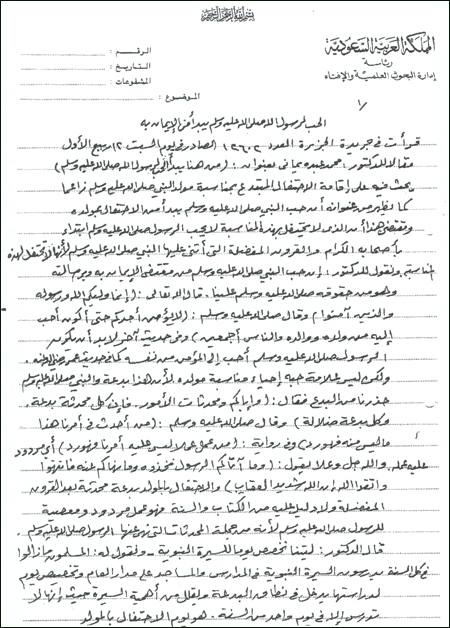 بسم الله الرحمن الرحيم
المملكة العربية السعودية
رئاسة
إدارة البحوث العلمية والإفتاء
الرقم :
التاريخ :
المشفوعات :
الموضوع :
١/
الحب لرسول الله صلى الله عليه وسلم يبدأ من الإيمان به
قرأت في جريدة الجزيرة العدد ١٢٦٠٢ الصادر في يوم السبت ١٢ ربيع الأول
مقالا للدكتور : محمد عبده يماني بعنوان : ( من هنا يبدأ الحب لرسول الله صلى الله عليه وسلم )
يحث فيه على إقامة الاحتفال المبتدع بمناسبة مولد النبي صلى الله عليه وسلم زاعما
كما يظهر من عنوانه أن حب النبي صلى الله عليه وسلم يبدأ من الاحتفال بمولده
ومقتضى هذا أن الذي لا يحتفل بهذه المناسبة لا يحب الرسول صلى الله عليه وسلم ابتداء
بأصحابه الكرام والقرون المفضلة التي أثنى عليها النبي صلى الله عليه وسلم لأنها لم تحتفل لهذه
المناسبة ونقول للدكتور : إن حب النبي صلى الله عليه وسلم من مقتضى الإيمان به وبرسالته
وهو من حقوقه صلى الله عليه وسلم علينا . قال الله تعالى : ( إنما وليكم الله ورسوله
والذين آمنوا ) وقال صلى الله عليه وسلم : ( لا يؤمن أحدكم حتى أكون أحب
إليه من ولده ووالده والناس أجمعين ) وفي حديث آخر لا بد أن يكون
الرسول صلى الله عليه وسلم أحب إلى المؤمن من نفسه كما في حديث عمر رضي الله عنه .
ولكن ليس علامة حبه إحياء مناسبة مولده لأن هذا بدعة والنبي صلى الله عليه وسلم
حذرنا من البدع فقال : ( وإياكم ومحدثات الأمور . فإن كل محدثة بدعة .
وكل بدعة ضلالة ) وقال صلى الله عليه وسلم : ( من أحدث في أمرنا هذا
ما ليس منه فهو رد ) وفي رواية : ( من عمل عملا ليس عليه أمرنا فهو رد ) أي مردود
عليه عمله والله جل وعلا يقول : ( وما آتاكم الرسول فخذوه وما نهاكم عنه فانتهوا
واتقوا الله إن الله شديد العقاب ) والاحتفال بالمولد بدعة محدثة بعد القرون
المفضلة ولا دليل عليه من الكتاب والسنة فهو عمل مردود ومعصية
للرسول صلى الله عليه وسلم لأنه من جملة المحدثات التي نهى عنها الرسول صلى الله عليه وسلم .
قال الدكتور : ليتنا نخصص يوما للسيرة النبوية - ونقول له : المسلمون ما زالوا
في كل السنة يدرسون السيرة النبوية في المدارس والمساجد على مدار العام وتخصيص يوم
لدراستها يدخل في نطاق البدعة ويقلل من أهمية السيرة حيث إنها لا
تدرس إلا في يوم واحد من السنة . هو يوم الاحتفال بالمولد